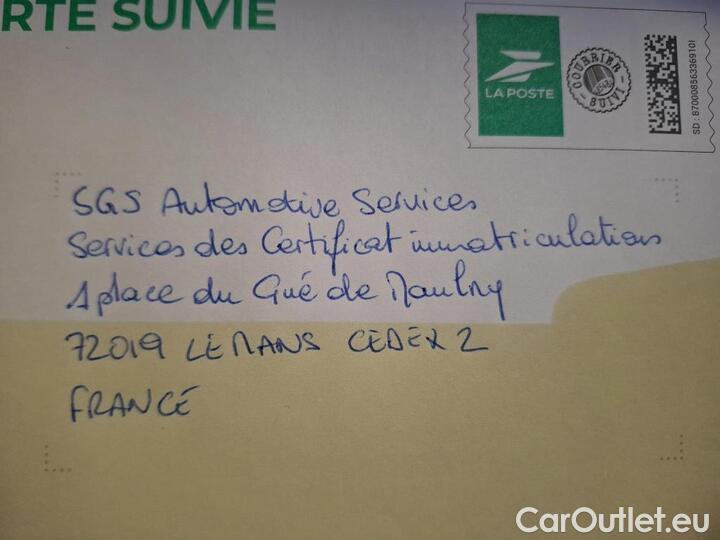 RTE SUIVIE
LA POSTE
COURRIER
SUIVI
SD : 87000856336910I
SGS Automotive Services
Services des Certificat immatriculations
1 place du Gué de Maulny
72019 LE MANS CEDEX 2
FRANCE
CarOutlet.eu